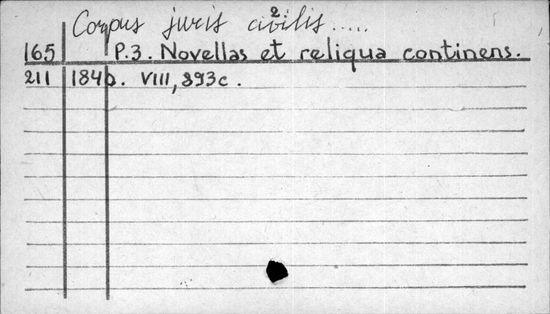 Corpus juris civilis.....
2
165 P.3. Novellas et reliqua continens.
211 1840. VIII, 893c.